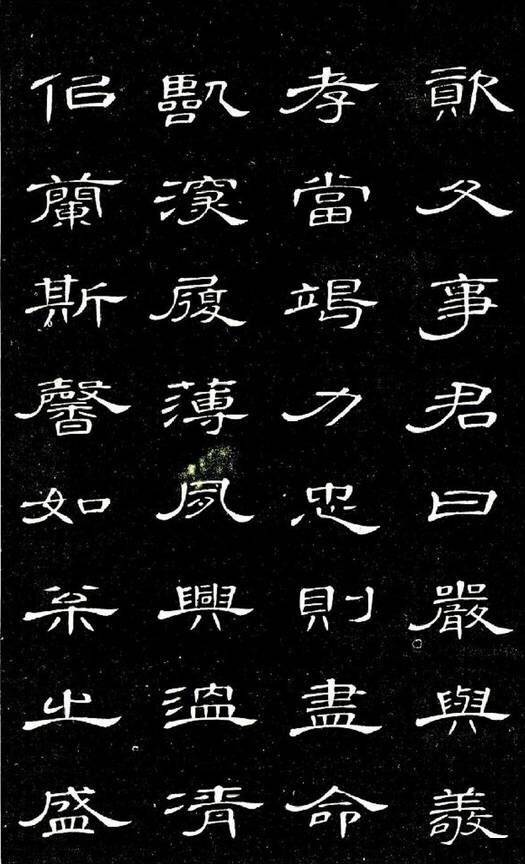 資父事君曰嚴與敬
孝當竭力忠則盡命
臨深履薄夙興溫凊
佀蘭斯馨如枩之盛